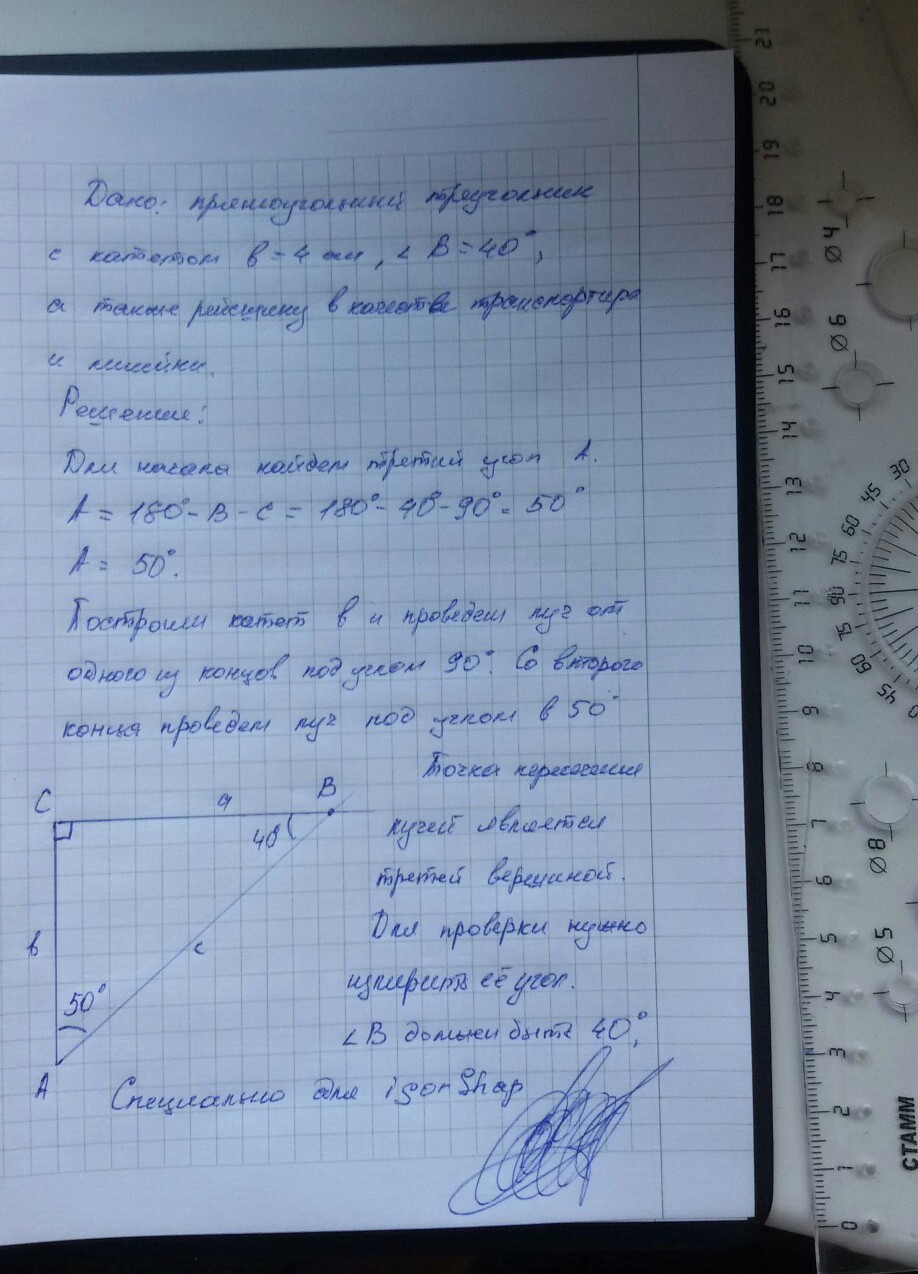 Дано: прямоугольный треугольник
с катетом b = 4 см, ∠B = 40°,
а также рейсшину в качестве транспортира
и линейки.
Решение:
Для начала найдем третий угол A.
A = 180° - B - C = 180° - 40° - 90° = 50°
A = 50°.
Построим катет b и проведем луч от
одного из концов под углом 90°. Со второго
конца проведем луч под углом в 50°
Точка пересечения
лучей является
третьей вершиной.
Для проверки нужно
измерить её угол.
∠B должен быть 40°.
C
a
B
40°
b
c
50°
A
Специально для igorShap
21
20
19
18
17
16
15
14
13
12
11
10
9
8
7
6
5
4
3
2
1
0
Ø 4
Ø 6
Ø 8
Ø 5
30
45
60
75
90
75
60
45
0
СТАММ